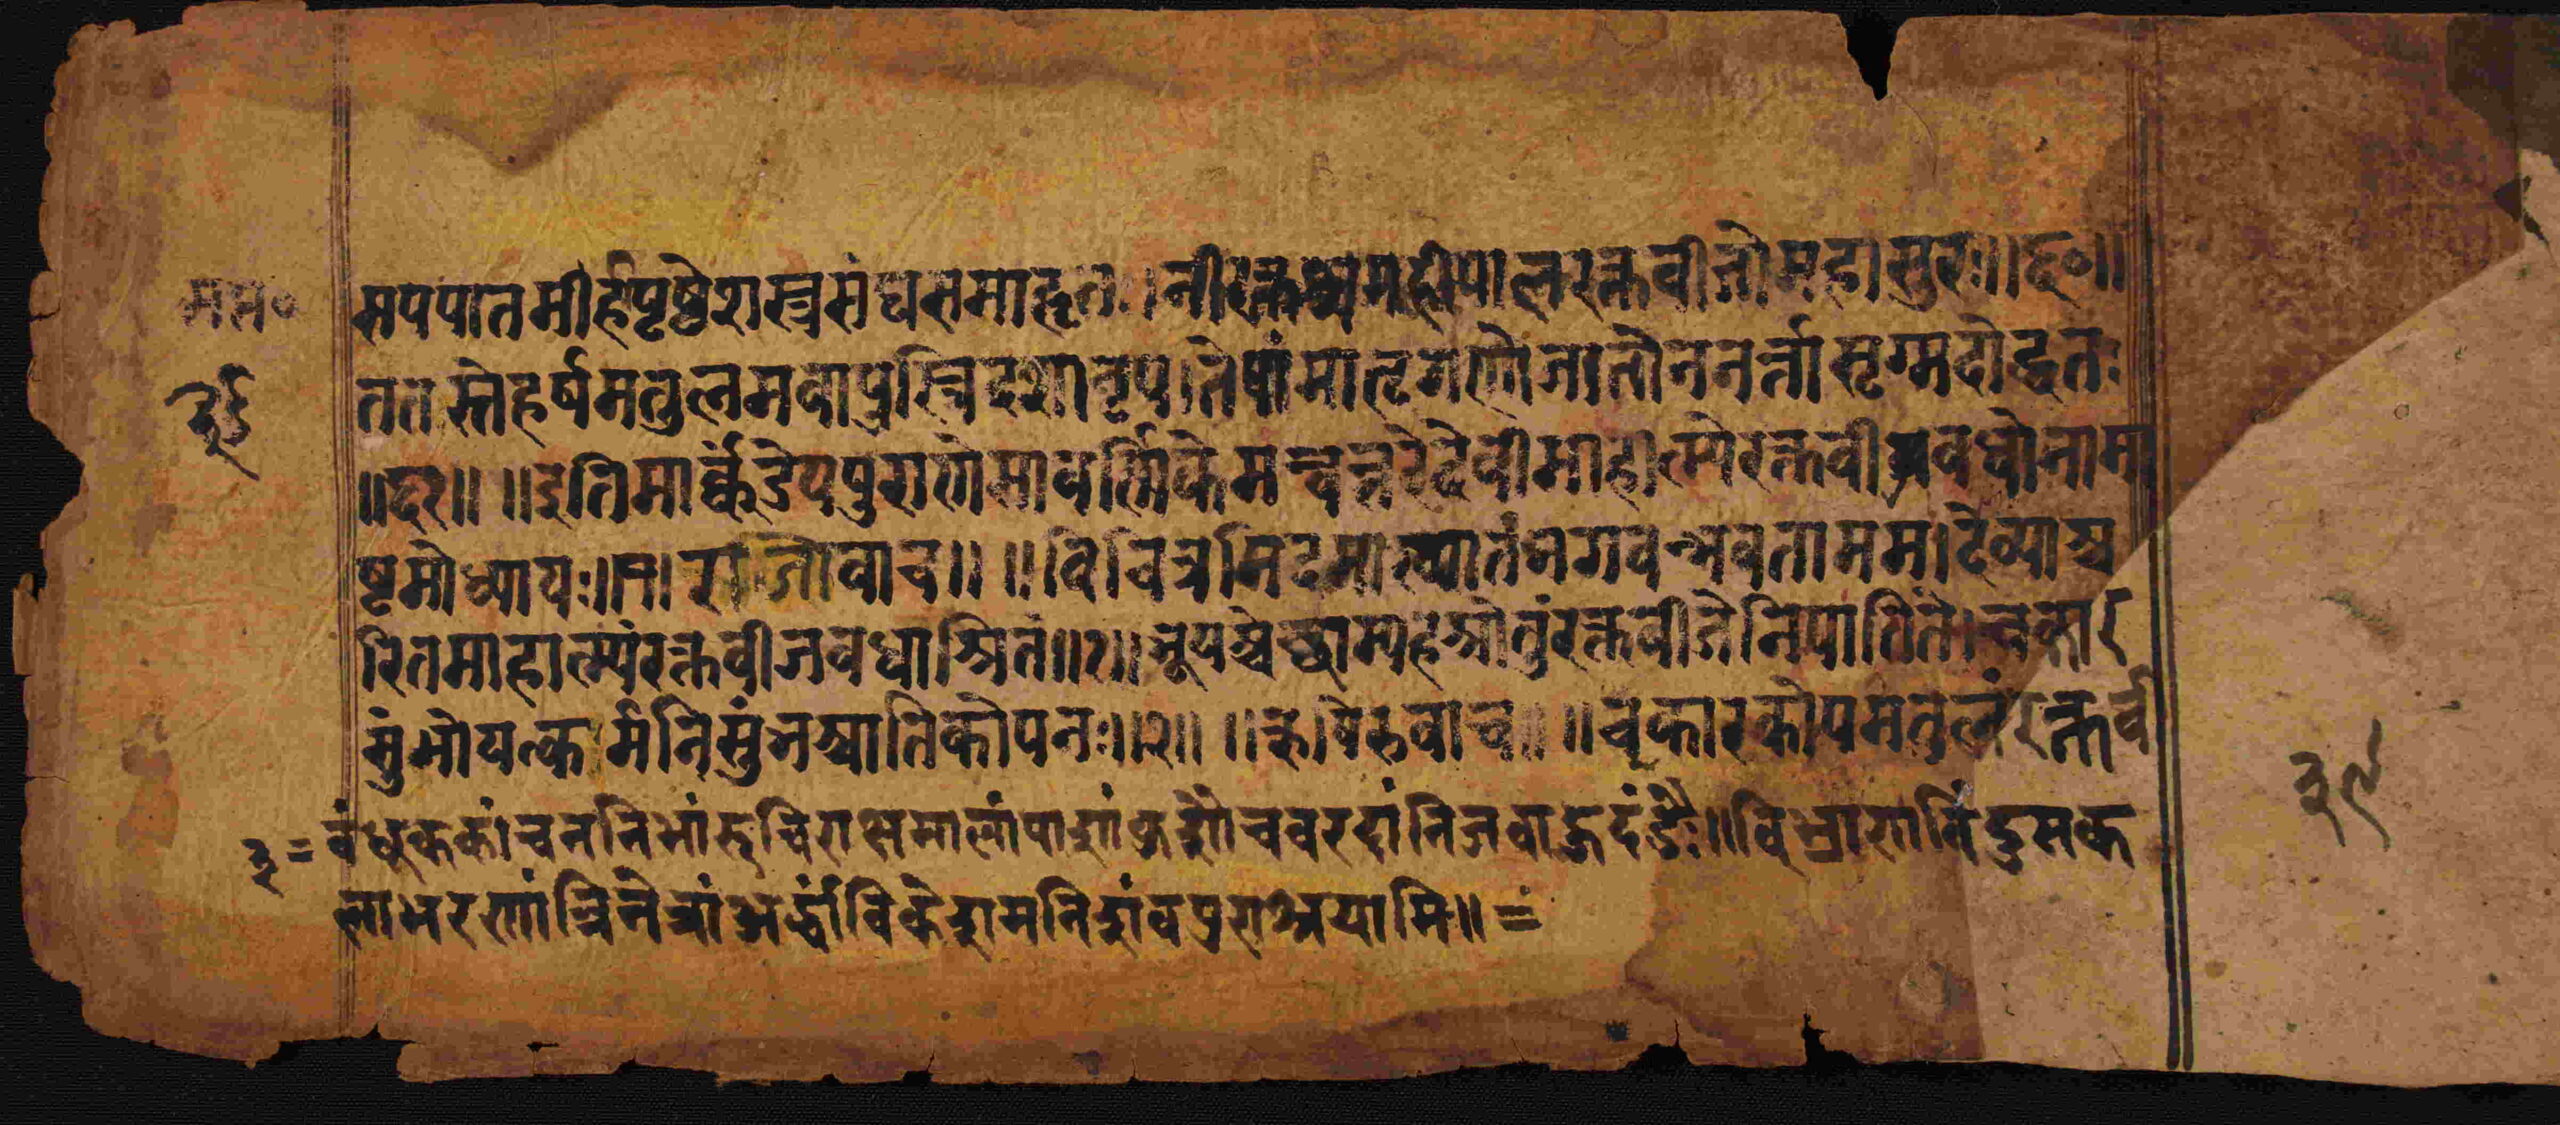 सप्त०
३९
सपपातमहीपृष्ठेशस्त्रसंघसमाहृतः।नीरक्तश्चमहीपालरक्तवीजोमहासुरः॥६०॥
ततस्तेहर्षमतुलमवापुस्त्रिदशानृप।तेषांमातृगणोजातोननर्त्तासृग्मदोद्धतः
॥६१॥ ॥इतिमार्कंडेयपुराणेसावर्त्तिकेमन्वन्तरेदेवीमाहात्म्येरक्तवीजवधोनामा
ष्टमोध्यायः॥१॥राजोवाच॥ ॥विचित्रमिदमाख्यातंभगवन्भवतामम।देव्याश्च
रितमाहात्म्यंरक्तवीजवधाश्रितं॥१॥भूयश्चेच्छाम्यहंश्रोतुंरक्तवीजेनिपातिते।चकार
सुंभोयत्कर्मनिसुंभश्चातिकोपनः॥२॥ ॥ऋषिरुवाच॥ ॥चकारकोपमतुलंरक्तवी
३=वंधूककांचननिभांरुचिराक्षमालांपाशांकुशौचवरदांनिजवाहुदंडैः॥विभ्राणमिंदुसक
लाभरणांत्रिनेत्रांअर्द्धांविकेशमनिशंवपुराश्रयामि॥=
३९